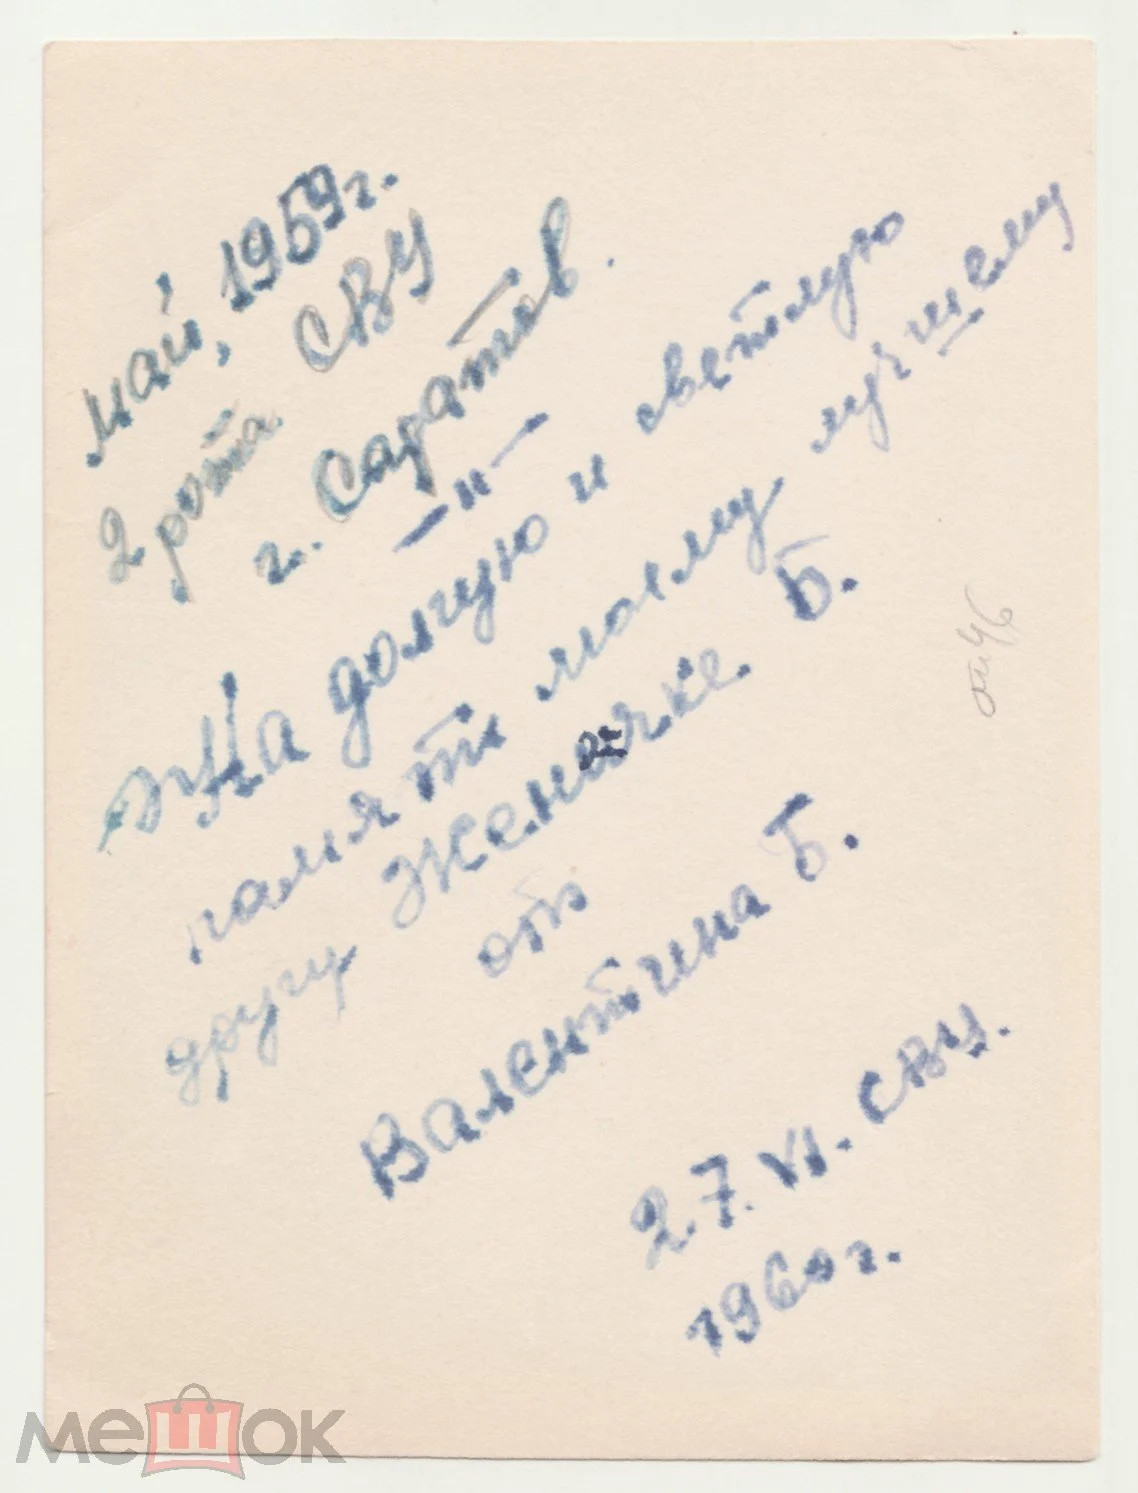 май, 1959г.
2 рота СВУ
г. Саратов.
—"—
На долгую и светлую
память моему лучшему
другу Женечке Б.
от
Валентина Б.
27. VI. СВУ.
1960г.
мешок